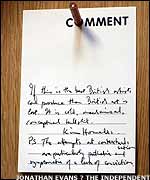 COMMENT
If this is the best British artists
can produce then British art is
lost. It is cold, mechanical,
conceptual bullshit.
Kim Howells.
P.S. The attempts at contextualisation
are particularly pathetic and
symptomatic of a lack of conviction
JONATHAN EVANS ? THE INDEPENDENT